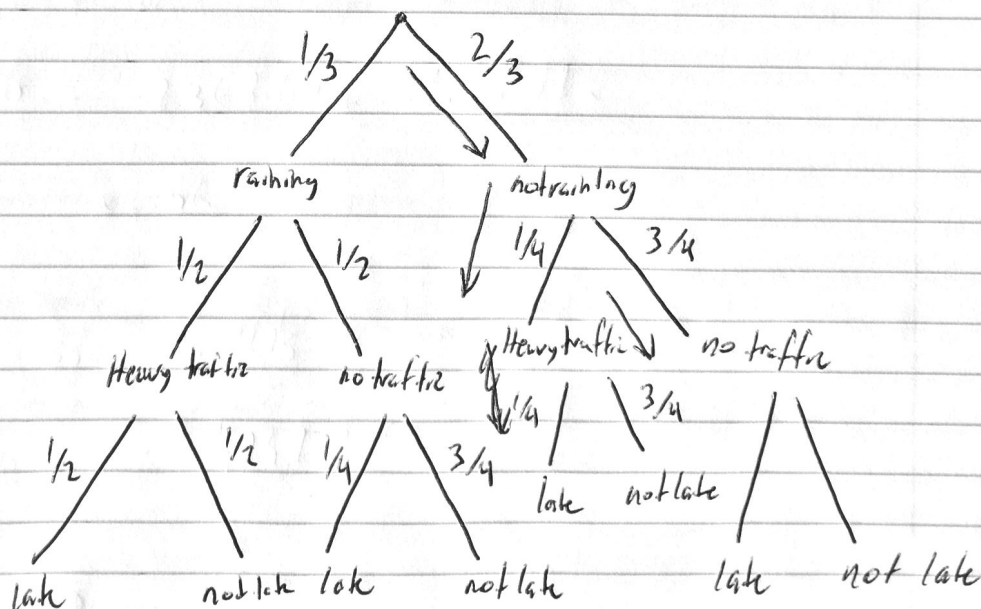 1/3 2/3
raining not raining
1/2 1/2 1/4 3/4
Heavy traffic no traffic Heavy traffic no traffic
1/2 1/2 1/4 3/4 1/4 3/4
late not late
late not late late not late late not late